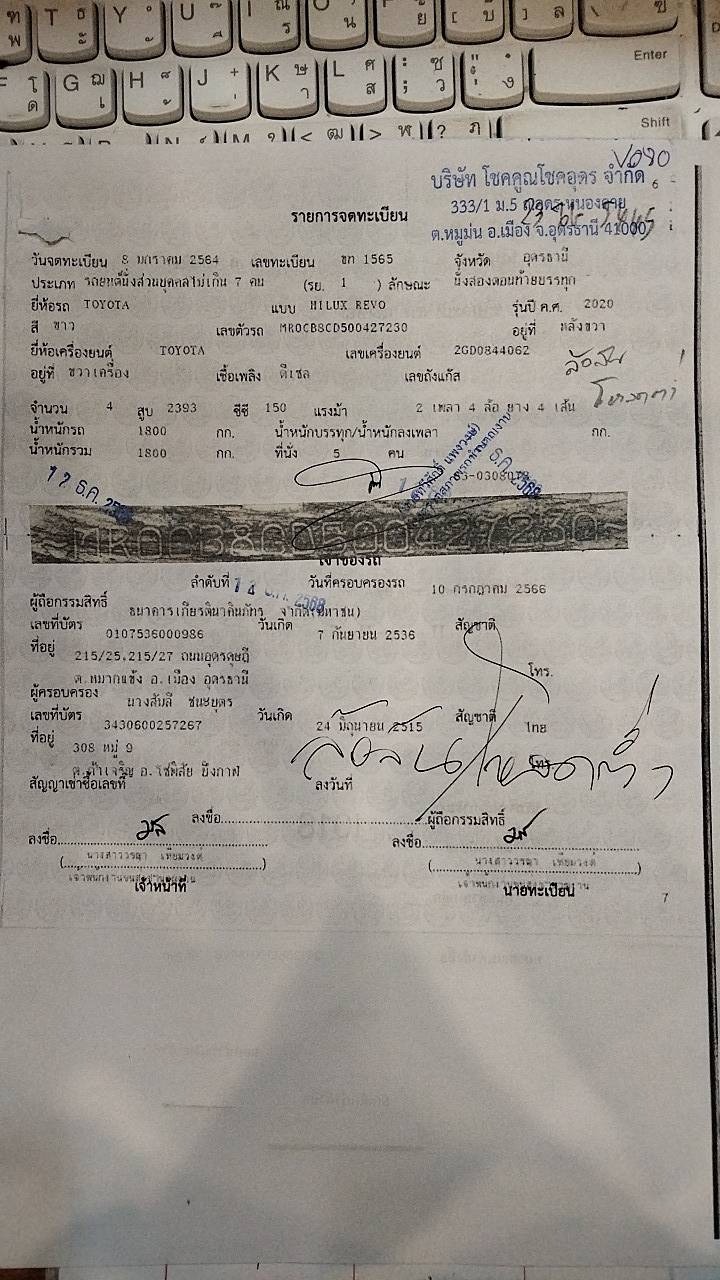 Enter
Shift
บริษัท โชคคูณโชคอุดร จำกัด
333/1 ม.5 ถ.อุดร-หนองลาย
ต.หมูม่น อ.เมือง จ.อุดรธานี 41000
รายการจดทะเบียน
วันจดทะเบียน 8 มกราคม 2564 เลขทะเบียน 1565 จังหวัด อุดรธานี
ประเภท รถยนต์นั่งส่วนบุคคลไม่เกิน 7 คน (รย. 1 ) ลักษณะ นั่งสองตอนท้ายบรรทุก
ยี่ห้อรถ TOYOTA แบบ HILUX REVO รุ่นปี ค.ศ. 2020
สี ขาว เลขตัวรถ MR0CB8CD500427230 อยู่ที่ หลังขวา
ยี่ห้อเครื่องยนต์ TOYOTA เลขเครื่องยนต์ 2GD0844062
อยู่ที่ ขวาเครื่อง เชื้อเพลิง ดีเซล เลขถังแก๊ส
จำนวน 4 สูบ 2393 ซีซี 150 แรงม้า 2 เพลา 4 ล้อ ยาง 4 เส้น
น้ำหนักรถ 1800 กก. น้ำหนักบรรทุก/น้ำหนักลงเพลา กก.
น้ำหนักรวม 1800 กก. ที่นั่ง 5 คน
12 ธ.ค. 2568
MR0CB8CD500427230
เจ้าของรถ
ลำดับที่ วันที่ครอบครองรถ 10 กรกฎาคม 2566
12 ธ.ค. 2568
ผู้ถือกรรมสิทธิ์ ธนาคารเกียรตินาคินภัทร จำกัด(มหาชน)
เลขที่บัตร 0107536000986 วันเกิด 7 กันยายน 2536 สัญชาติ
ที่อยู่ 215/25,215/27 ถนนอุดรดุษฎี
ต.หมากแข้ง อ.เมือง อุดรธานี โทร.
ผู้ครอบครอง นางสมลี ชนะบุตร
เลขที่บัตร 3430600257267 วันเกิด 24 มิถุนายน 2515 สัญชาติ ไทย
ที่อยู่ 308 หมู่ 9
อ.โซ่พิสัย บึงกาฬ
สัญญาเช่าซื้อเลขที่ ลงวันที่
ลงชื่อ ผู้ถือกรรมสิทธิ์
ลงชื่อ ลงชื่อ
เจ้าหน้าที่ นายทะเบียน
7